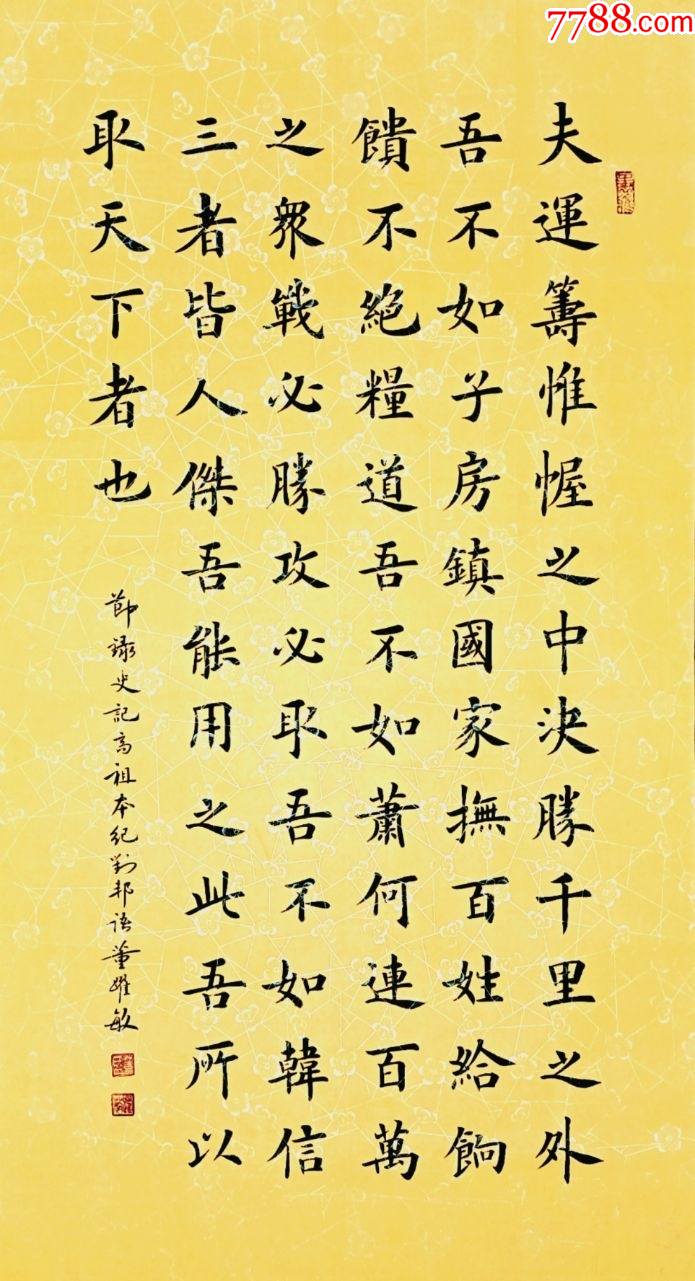 7788.com
夫運籌惟幄之中決勝千里之外
吾不如子房鎮國家撫百姓給餉
饋不絕糧道吾不如蕭何連百萬
之衆戰必勝攻必取吾不如韓信
三者皆人傑吾能用之此吾所以
取天下者也
節錄史記高祖本紀劉邦語董敏